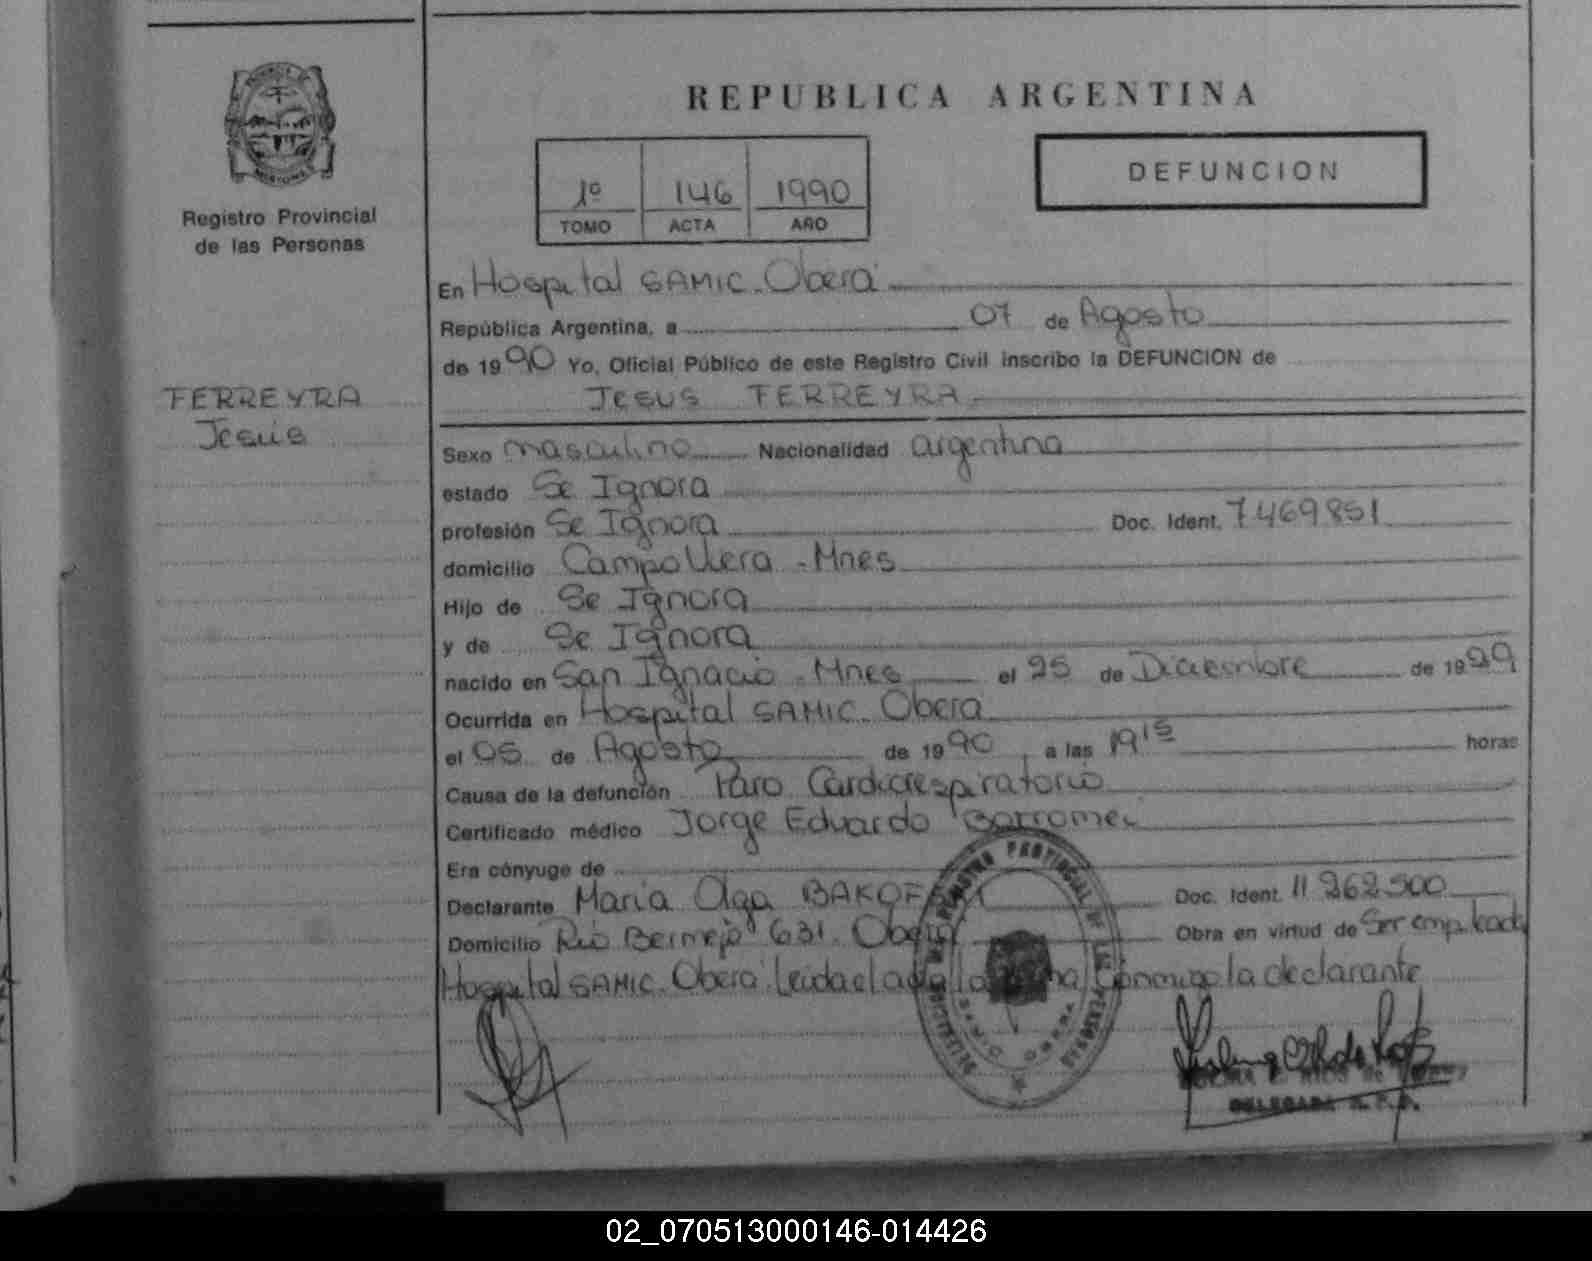 REPUBLICA ARGENTINA
DEFUNCION
1º 146 1990
TOMO ACTA AÑO
Registro Provincial
de las Personas
FERREYRA
Jesús
En Hospital SAMIC - Oberá
República Argentina, a 07 de Agosto
de 1990 Yo, Oficial Público de este Registro Civil inscribo la DEFUNCION de
Jesus FERREYRA
Sexo masculino Nacionalidad argentina
estado Se Ignora
profesión Se Ignora Doc. Ident. 7469851
domicilio Campo Viera - Mnes
Hijo de Se Ignora
y de Se Ignora
nacido en San Ignacio - Mnes el 25 de Diciembre de 1929
Ocurrida en Hospital SAMIC Oberá
el 05 de Agosto de 1990, a las 19 15 horas
Causa de la defunción Paro Cardiorespiratorio
Certificado médico Jorge Eduardo
Era cónyuge de
Declarante Maria Olga BAKOF Doc. Ident. 11 262 500
Domicilio Rio Bermejo 631 Oberá Obra en virtud de Ser empleada
Hospital SAMIC Oberá Leida el acta la firma conmigo la declarante
REGISTRO PROVINCIAL DE LAS PERSONAS
DELEGADA R.P.P.
02_070513000146-014426